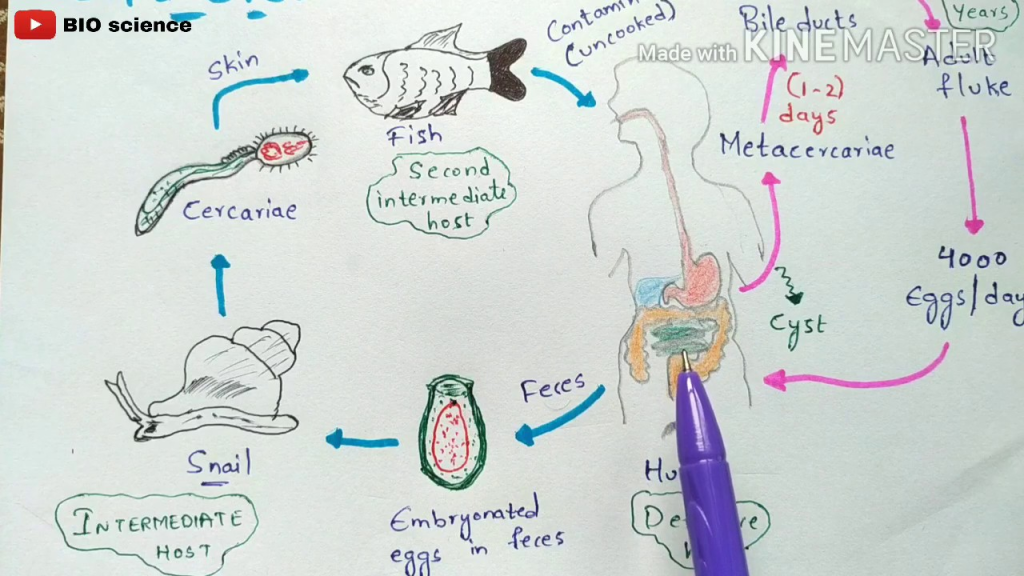 BIO science
Made with KINEMASTER
Skin
(uncooked)
Bile ducts
Years)
Adult
fluke
(1-2)
days
Fish
Metacercariae
Second
intermediate
host
Cercariae
4000
Eggs/day
Cyst
Feces
Snail
INTERMEDIATE
HOST
Embryonated
eggs in feces